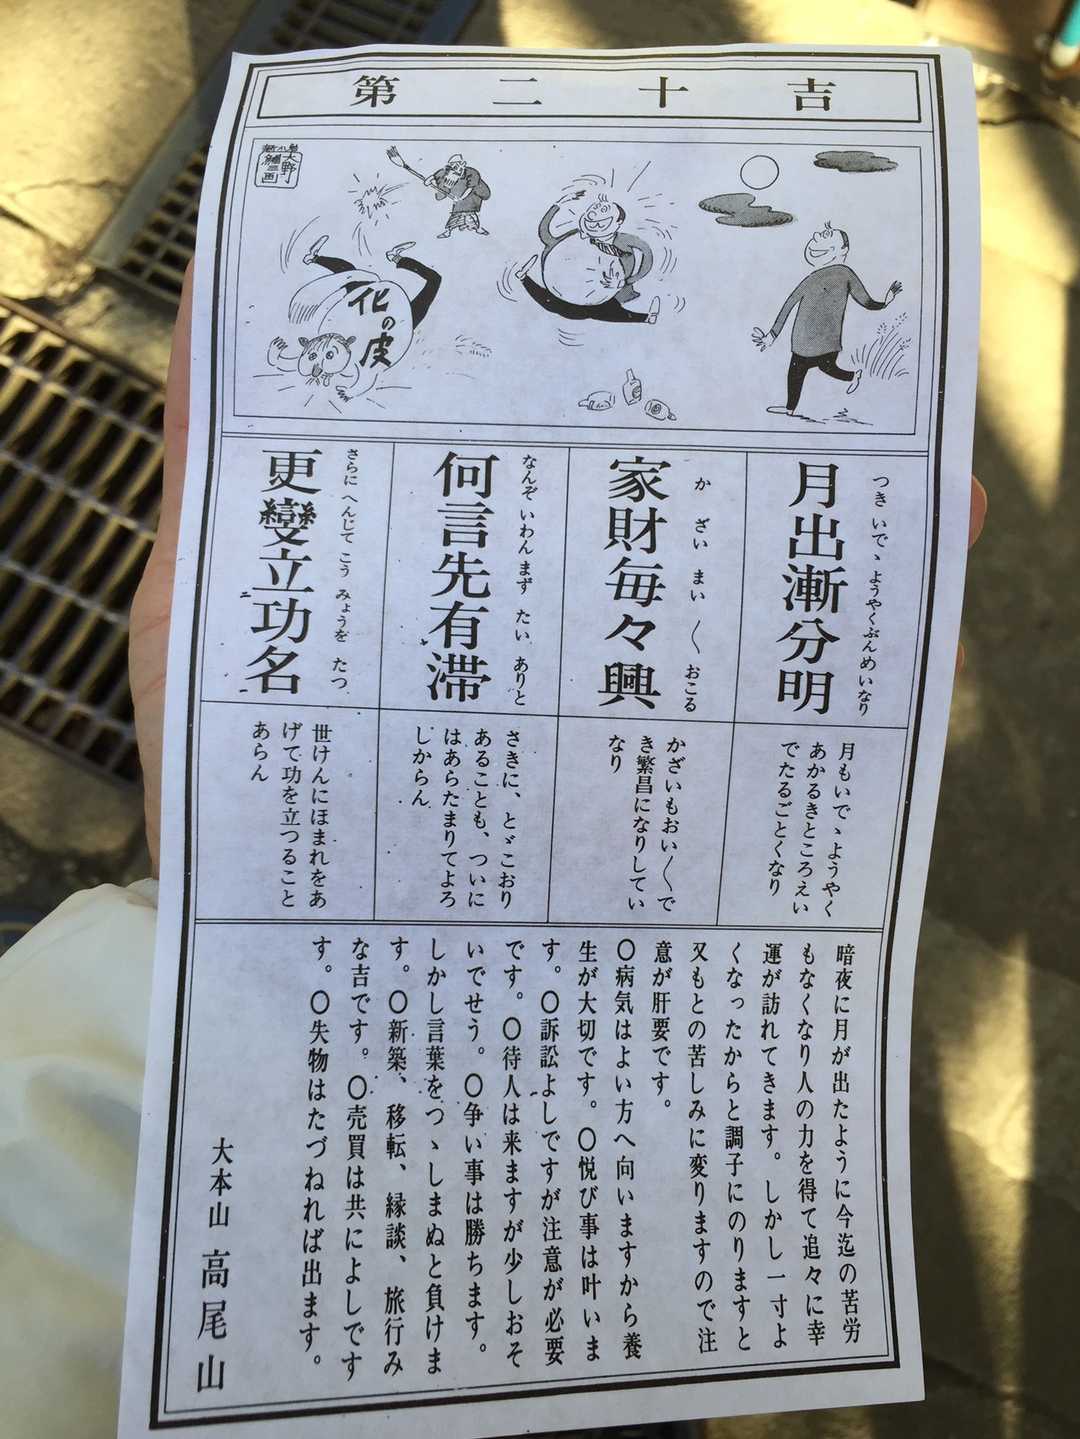 第二十吉
化の皮
月出漸分明
つきいでゝようやくぶんめいなり
家財毎々興
かざいまい〱おこる
何言先有滞
なんぞいわんまずたいありと
更變立功名
さらにへんじてこうみょうをたつ
月もいでゝようやく
あかるきところえい
でたるごとくなり
かざいもおい〱で
き繁昌になりしてい
なり
さきに、とゞこおり
あることも、ついに
はあらたまりてよろ
しからん
世けんにほまれをあ
げて功を立つること
あらん
暗夜に月が出たように今迄の苦労
もなくなり人の力を得て追々に幸
運が訪れてきます。しかし一寸よ
くなったからと調子にのりますと
又もとの苦しみに変りますので注
意が肝要です。
〇病気はよい方へ向いますから養
生が大切です。〇悦び事は叶いま
す。〇訴訟よしですが注意が必要
です。〇待人は来ますが少しおそ
いでせう。〇争い事は勝ちます。
しかし言葉をつゝしまぬと負けま
す。〇新築、移転、縁談、旅行み
な吉です。〇売買は共によしです
す。〇失物はたづねれば出ます。
大本山 高尾山